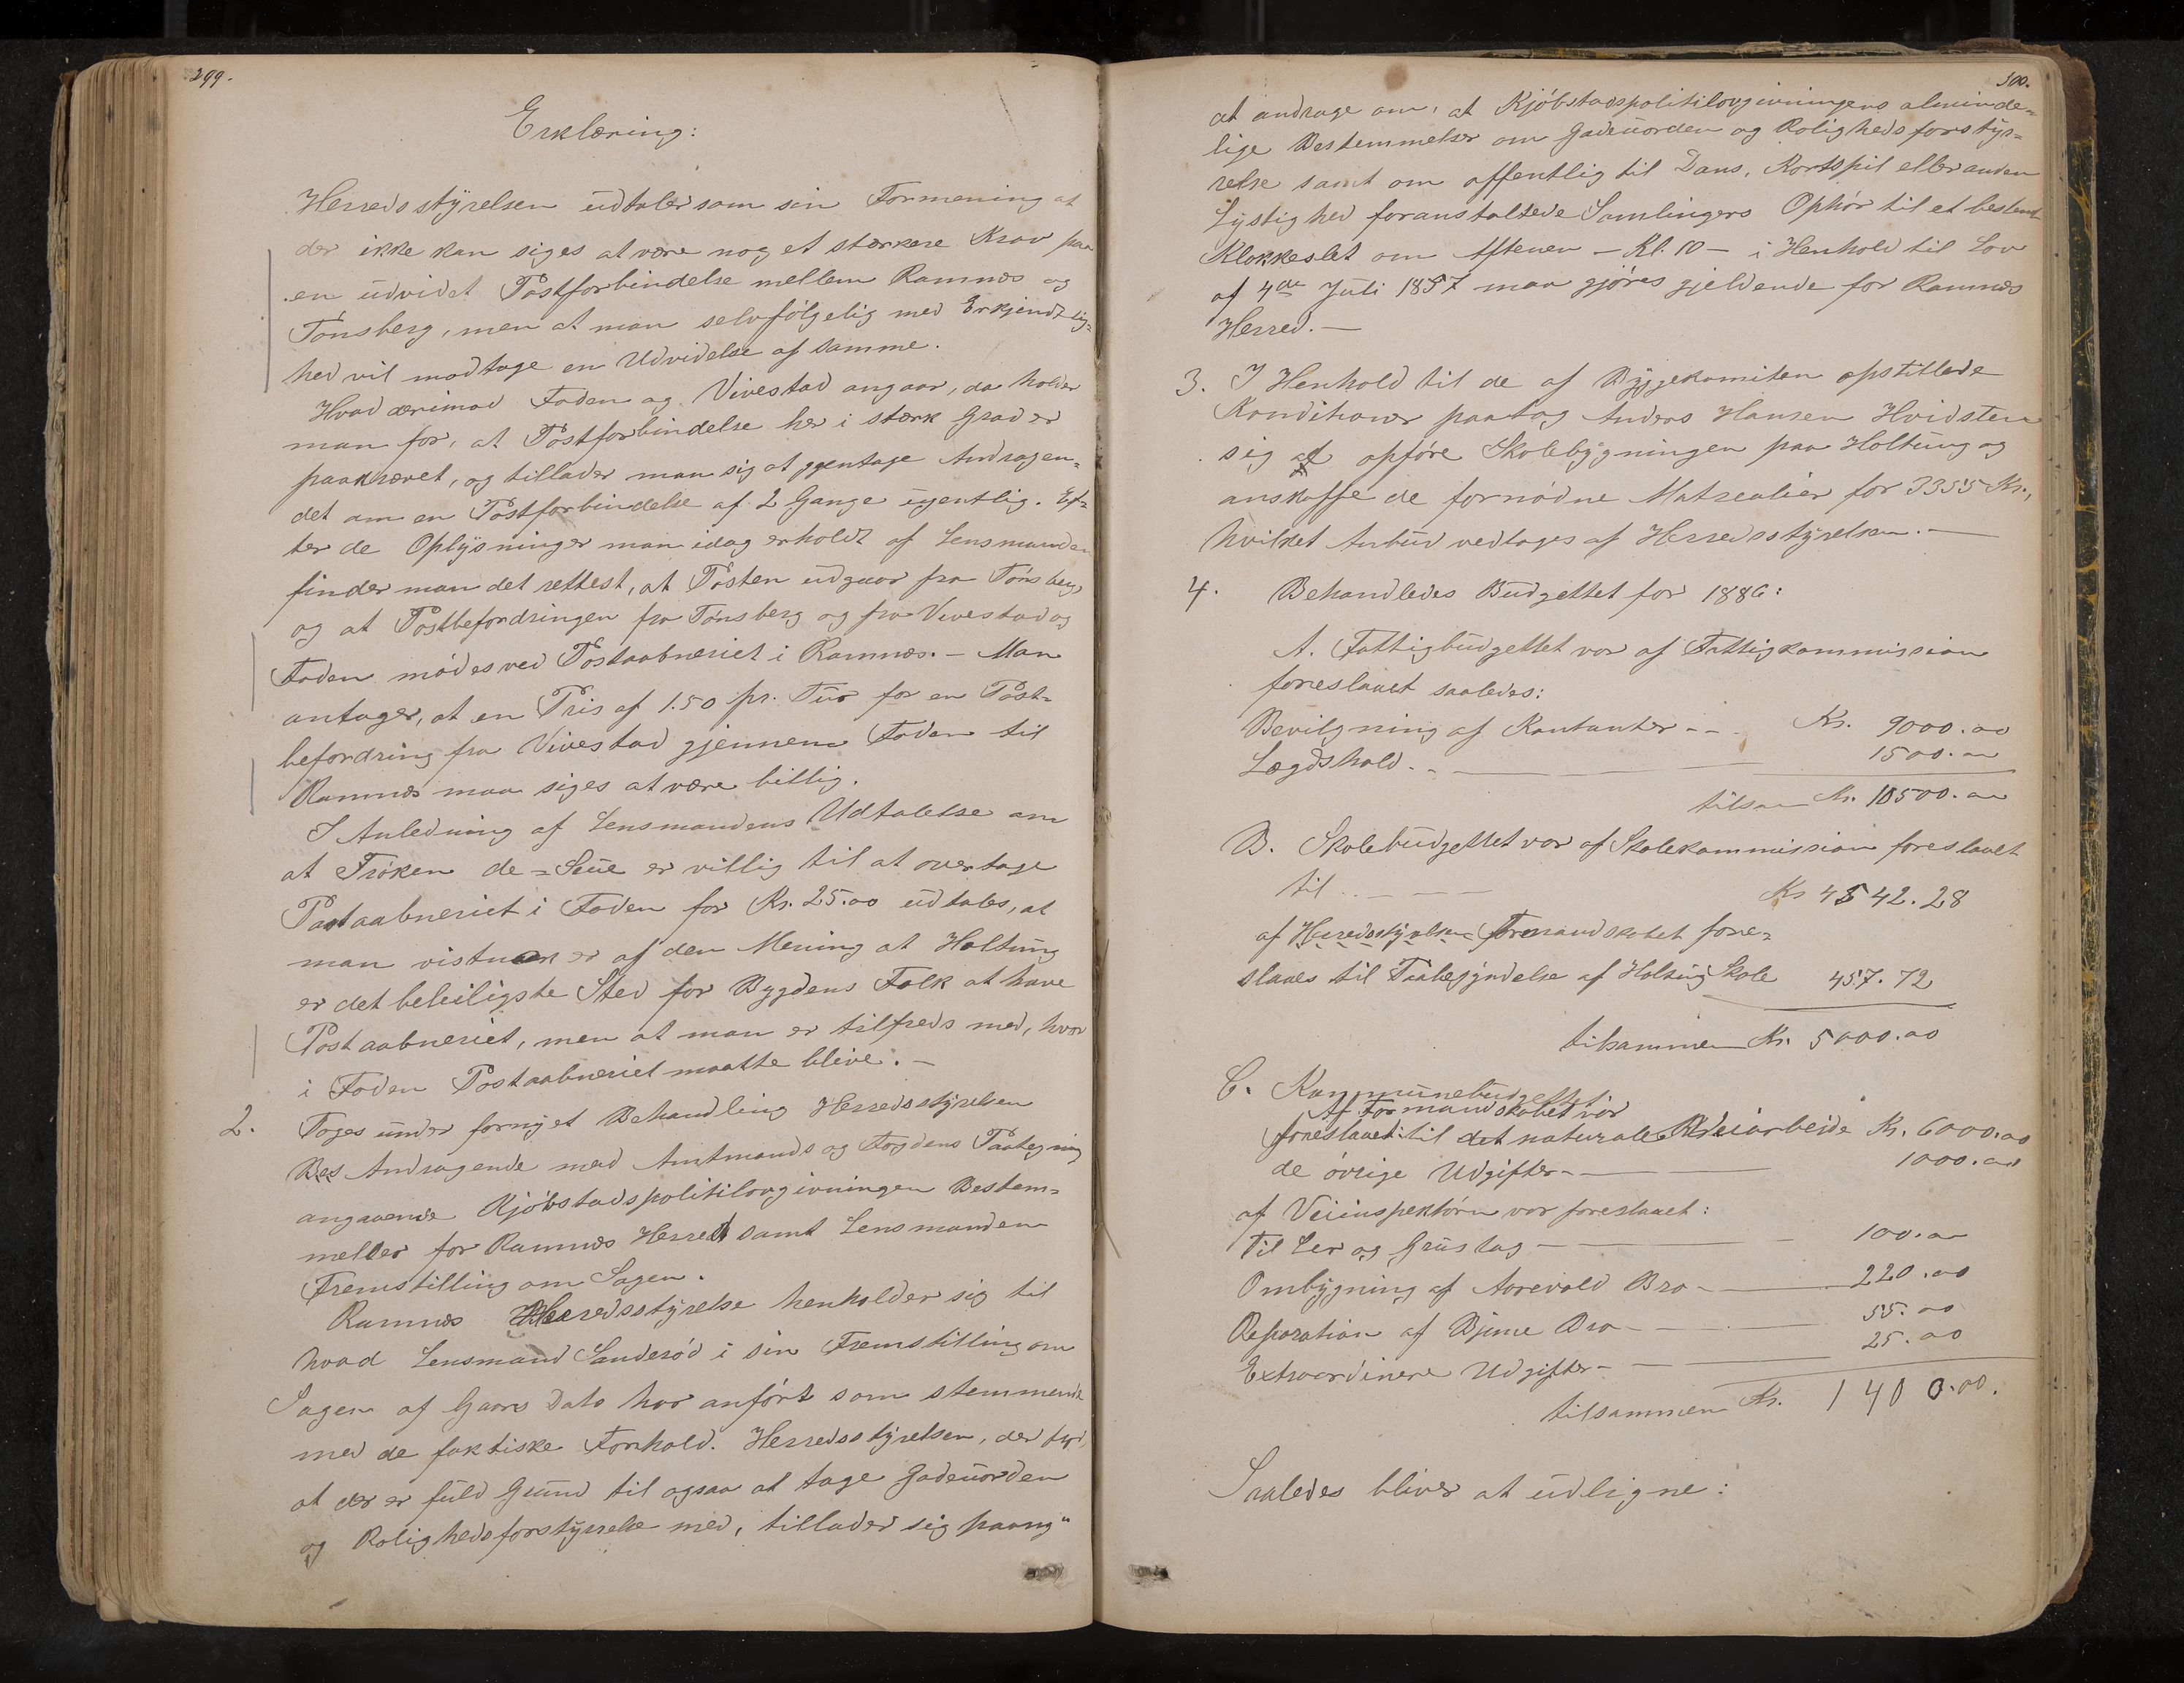 299.
Erklæring:
Herredsstyrelsen udtaler som sin Formening at
der ikke kan siges at være noget stærkere Krav paa
en udvidet Postforbindelse mellem Ramnæs og
Tønsberg, men at man selvfølgelig med Erkjendtlig=
hed vil modtage en Udvidelse af samme.
Hvad derimod Foden og Vivestad angaar, da holder
man for, at Postforbindelse her i stærk Grad er
paakrævet, og tillader man sig at gjentage Andragen=
det om en Postforbindelse af 2 Gange ugentlig. Ef=
ter de Oplysninger man idag erholdt af Lensmanden
finder man det rettest, at Posten udgaar fra Tønsberg
og at Postbefordringen fra Tønsberg og fra Vivestad og
Foden mødes ved Postaabneriet i Ramnæs. — Man
antager, at en Pris af 1.50 pr. Tur for en Post=
befordring fra Vivestad gjennem Foden til
Ramnæs maa siges at være billig.
I Anledning af Lensmandens Udtalelse om
at Frøken de=Seue er villig til at overtage
Postaabneriet i Foden for Kr. 25.00 udtales, at
man vistnok er af den Mening at Holtung
er det beleiligste Sted for Bygdens Folk at have
Postaabneriet, men at man er tilfreds med, hvor
i Foden Postaabneriet maatte blive. —
2. Toges under fornyet Behandling Herredsstyrelsen
Bes Andragende med Amtmands og Fogdens Paategning
angaaende Kjøbstadspolitilovgivningen Bestem=
melser for Ramnæs Herred samt Lensmanden
Fremstilling om Sagen.
Ramnæs Herredsstyrelse henholder sig til
hvad Lensmand Sanderød i sin Fremstilling om
Sagen af Gaars Dato har anført som stemmende
med de faktiske Forhold. Herredsstyrelsen, der
at der er fuld Grund til ogsaa at tage Gadeuorden
og Rolighedsforstyrrelse med, tillader sig paany
300.
at andrage om, at Kjøbstadspolitilovgivningens alminde=
lige Bestemmelser om Gadeuorden og Rolighedsforstyr=
relse samt om offentlig til Dans, Kortspil eller anden
Lystighed foranstaltede Samlingers Ophør til et bestemt
Klokkeslet om Aftenen — Kl. 10 — i Henhold til Lov
af 4de Juli 1857 maa gjøres gjeldende for Ramnæs
Herred. —
3. I Henhold til de af Byggekomiten opstillede
Konditioner paatog Anders Hansen Hvidsten
sig at opføre Skolebygningen paa Holtung og
anskaffe de fornødne Matrealier for 3355 Kr.,
hvilket Anbud vedtages af Herredsstyrelsen. —
4. Behandledes Budgettet for 1886:
A. Fattigbudgettet var af Fattigkommission
foreslaaet saaledes:
Bevilgning af Kontanter — — Kr. 9000.00
Lægdshold — 1500.00
tilsam Kr. 10500.00
B. Skolebudgettet var af Skolekommission foreslaaet
til — — — Kr 4542.28
af Herredsstyrelsen Formandskabet fore=
slaaes til Paabegyndelse af Holtung Skole 457.72
tilsammen Kr. 5000.00
C. Kommunebudgettet
Af Formandskabet var
foreslaaet: til det naturale Veiarbeide Kr. 6000.00
de øvrige Udgifter — 1000.00
af Veiinspektørn var foreslaaet:
Til Ler og Grustag — 100.00
Ombygning af Aarevold Bro — 220.00
Reparation af Bjune Bro — 55.00
Extraordinere Udgifter — 25.00
tilsammen Kr. 1400.00.
Saaledes bliver at udligne: